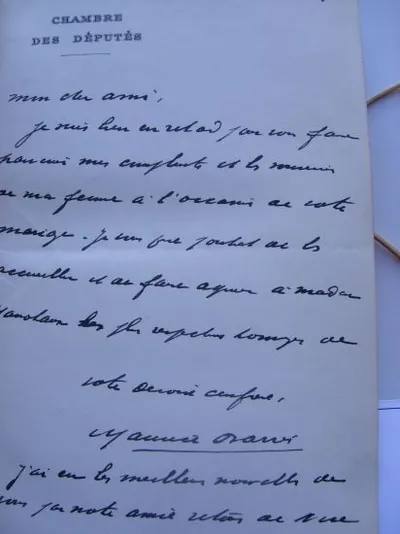 CHAMBRE
DES DÉPUTÉS
mon cher ami,
je suis bien en retard pour vous faire
parvenir mes compliments et les souvenirs
de ma femme à l'occasion de votre
mariage. Je vous prie de les
accueillir et de faire agréer à madame
les plus respectueux hommages de
votre dévoué confrère,
Maurice Barrès
j'ai eu les meilleures nouvelles de
vous par notre amie de